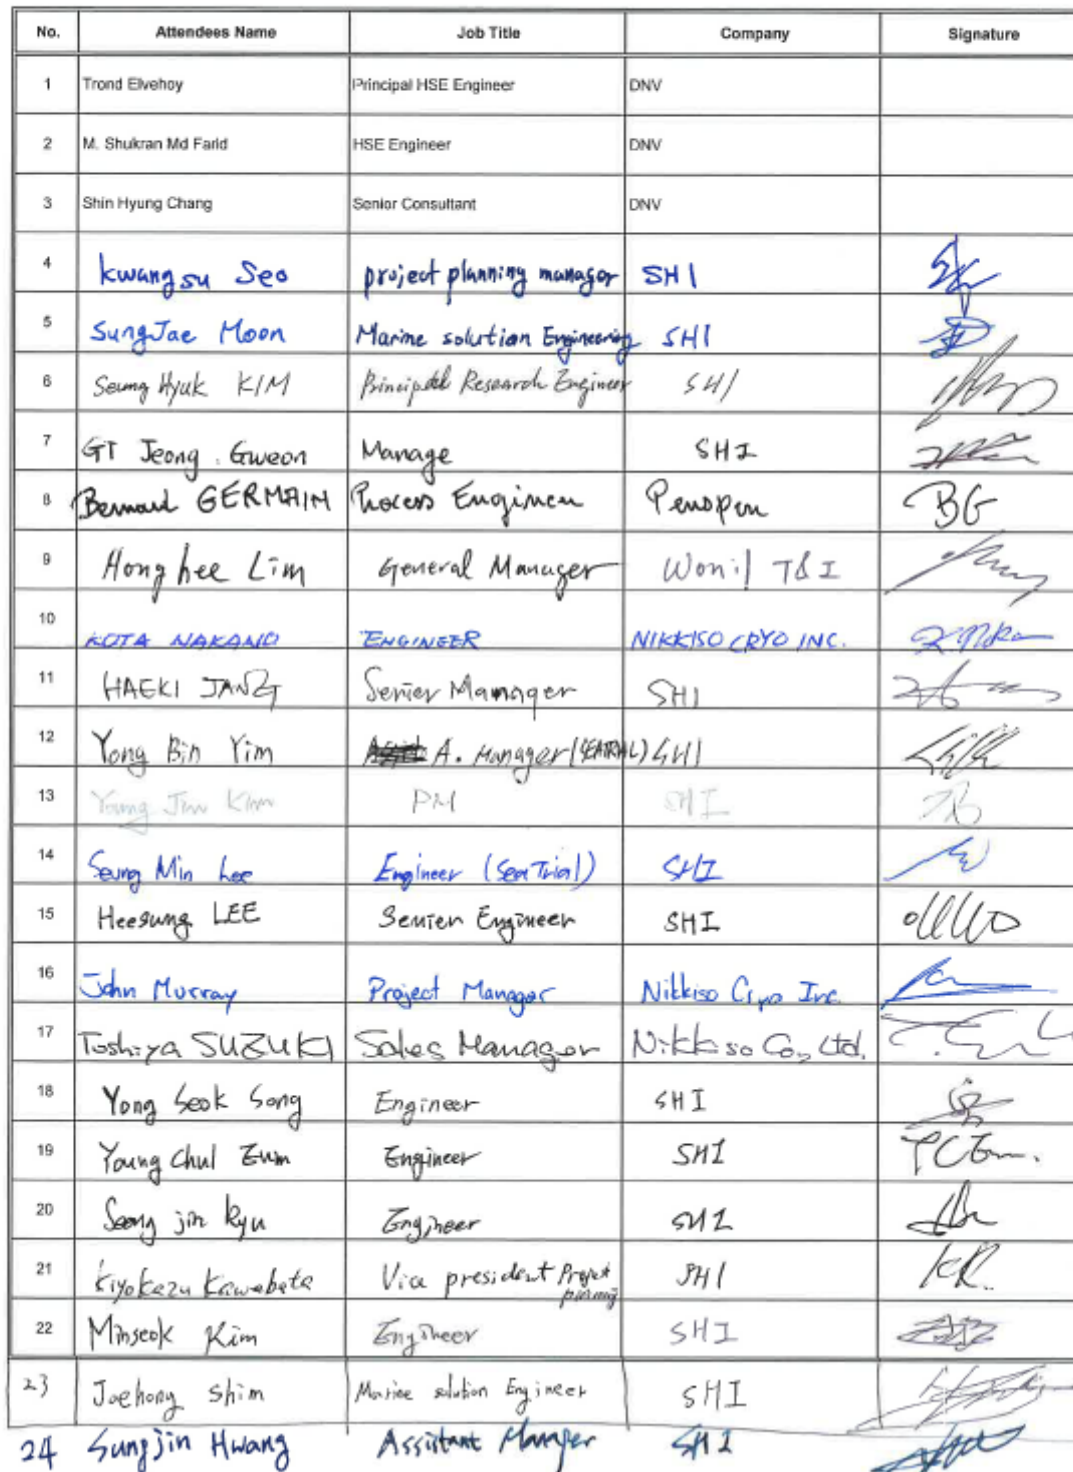 No. Attendees Name Job Title Company Signature
1 Trond Elvehoy Principal HSE Engineer DNV
2 M. Shukran Md Farid HSE Engineer DNV
3 Shin Hyung Chang Senior Consultant DNV
4 kwangsu Seo project planning manager SHI
5 SungJae Moon Marine solution Engineering SHI
6 Seung Hyuk KIM Principal Research Engineer SHI
7 GT Jeong . Gweon Manage SHI
8 Bernard GERMAIN Process Engineer Penspen BG
9 Honghee Lim General Manager Wonil T&I
10 KOTA NAKANO ENGINEER NIKKISO CRYO INC.
11 HAEKI JANG Senior Manager SHI
12 Yong Bin Yim A. Manager (SEATRIAL) SHI
13 Young Jin Kim PM SHI
14 Seung Min Lee Engineer (Sea Trial) SHI
15 Heesung LEE Senier Engineer SHI
16 John Murray Project Manager Nikkiso Cryo Inc.
17 Toshiya SUZUKI Sales Manager Nikkiso Co., Ltd.
18 Yong Seok Song Engineer SHI
19 Young Chul Eum Engineer SHI
20 Seong jin Ryu Engineer SHI
21 Kiyokazu Kawabata Vice president Project SHI KR.
22 Minseok Kim Engineer SHI
23 Jaehong Shim Marine solution Engineer SHI
24 Sungjin Hwang Assistant Manager SHI